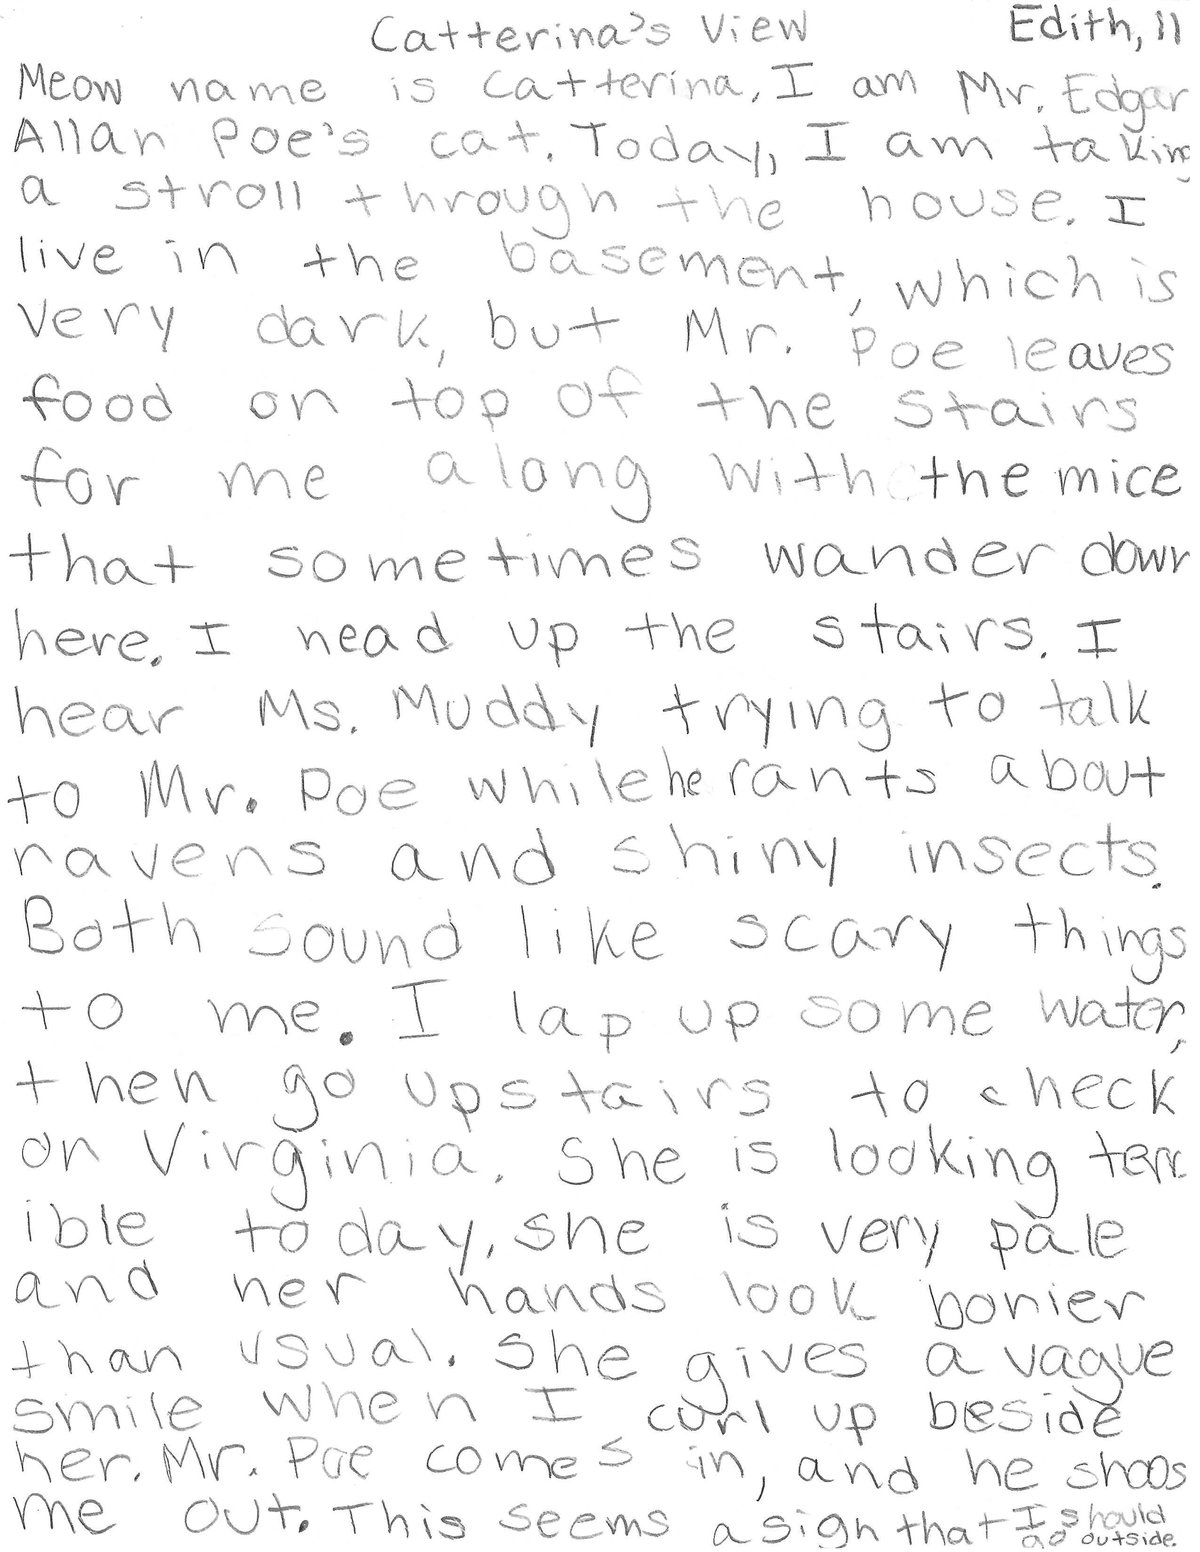 Catterina's View Edith, 11
Meow name is Catterina. I am Mr. Edgar
Allan Poe's cat. Today, I am taking
a stroll through the house. I
live in the basement, which is
very dark, but Mr. Poe leaves
food on top of the stairs
for me along with the mice
that sometimes wander down
here. I head up the stairs. I
hear Ms. Muddy trying to talk
to Mr. Poe while he rants about
ravens and shiny insects.
Both sound like scary things
to me. I lap up some water,
then go upstairs to check
on Virginia. She is looking terr
ible today, she is very pale
and her hands look bonier
than usual. She gives a vague
smile when I curl up beside
her. Mr. Poe comes in, and he shoos
me out. This seems a sign that I should
go outside.